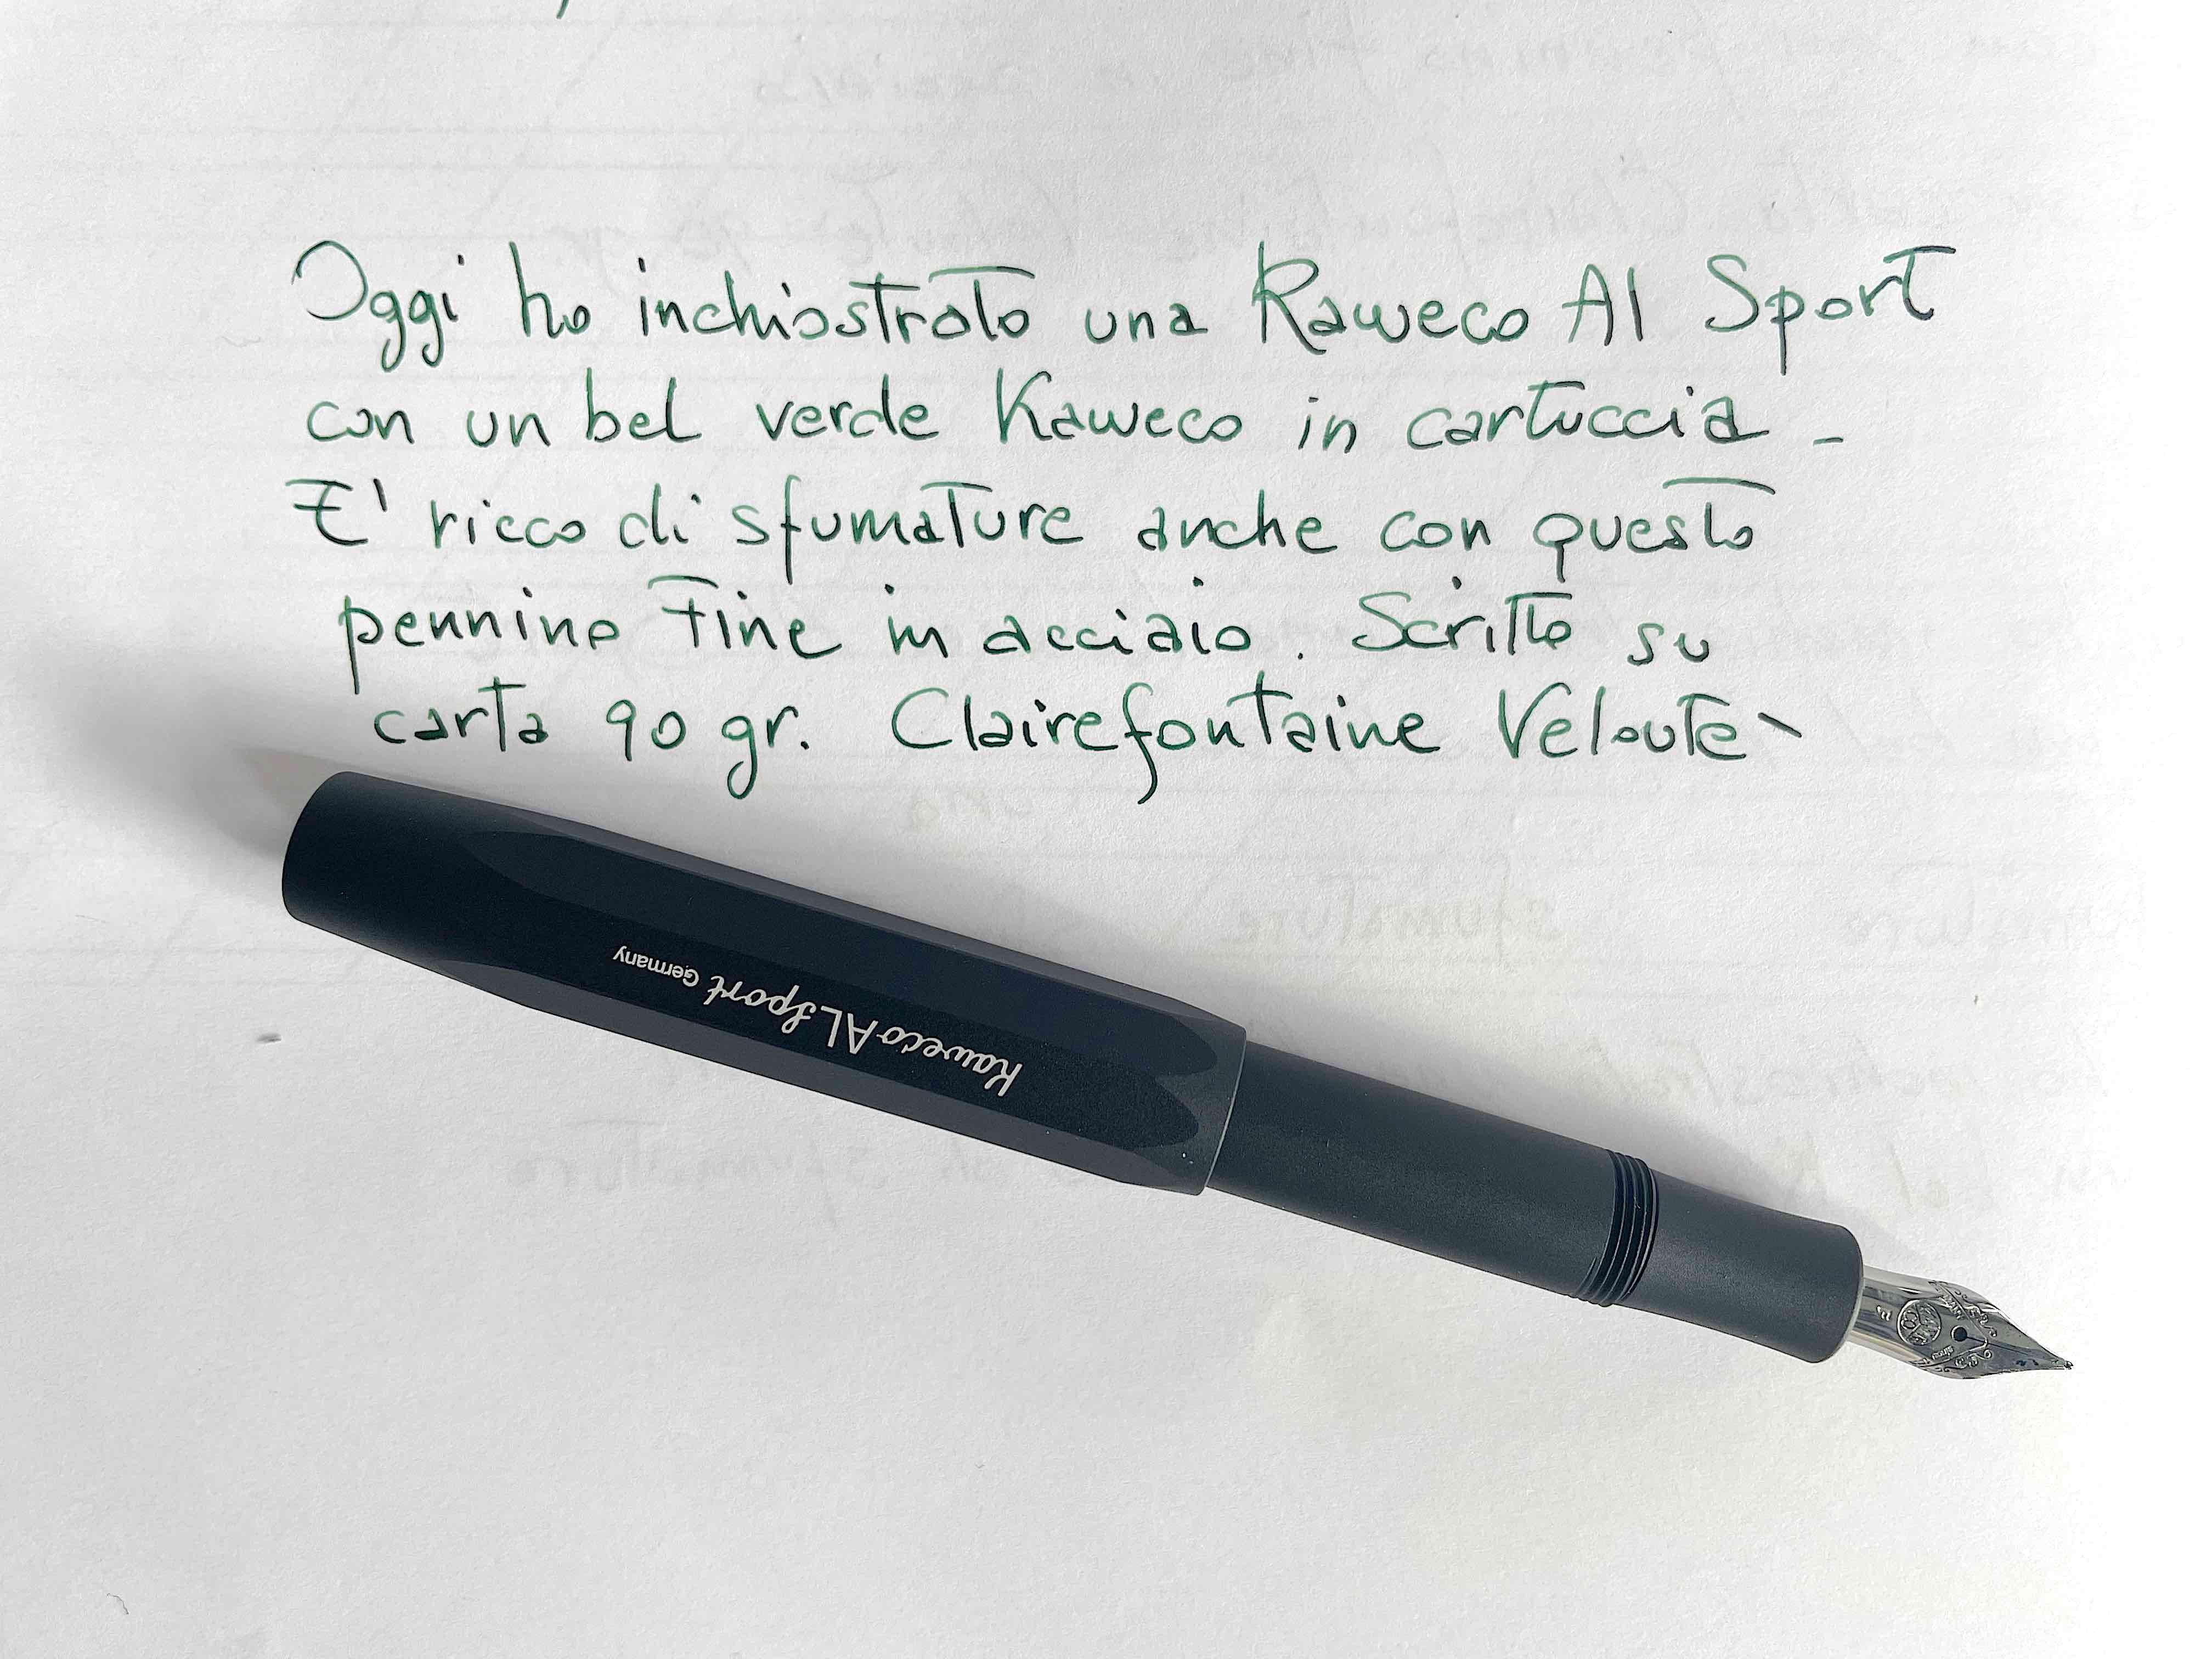 Oggi ho inchiostrato una Kaweco Al Sport
con un bel verde Kaweco in cartuccia -
E' ricco di sfumature anche con questo
pennino Fine in acciaio. Scritto su
carta 90 gr. Clairefontaine Veloutè
Kaweco AL Sport Germany